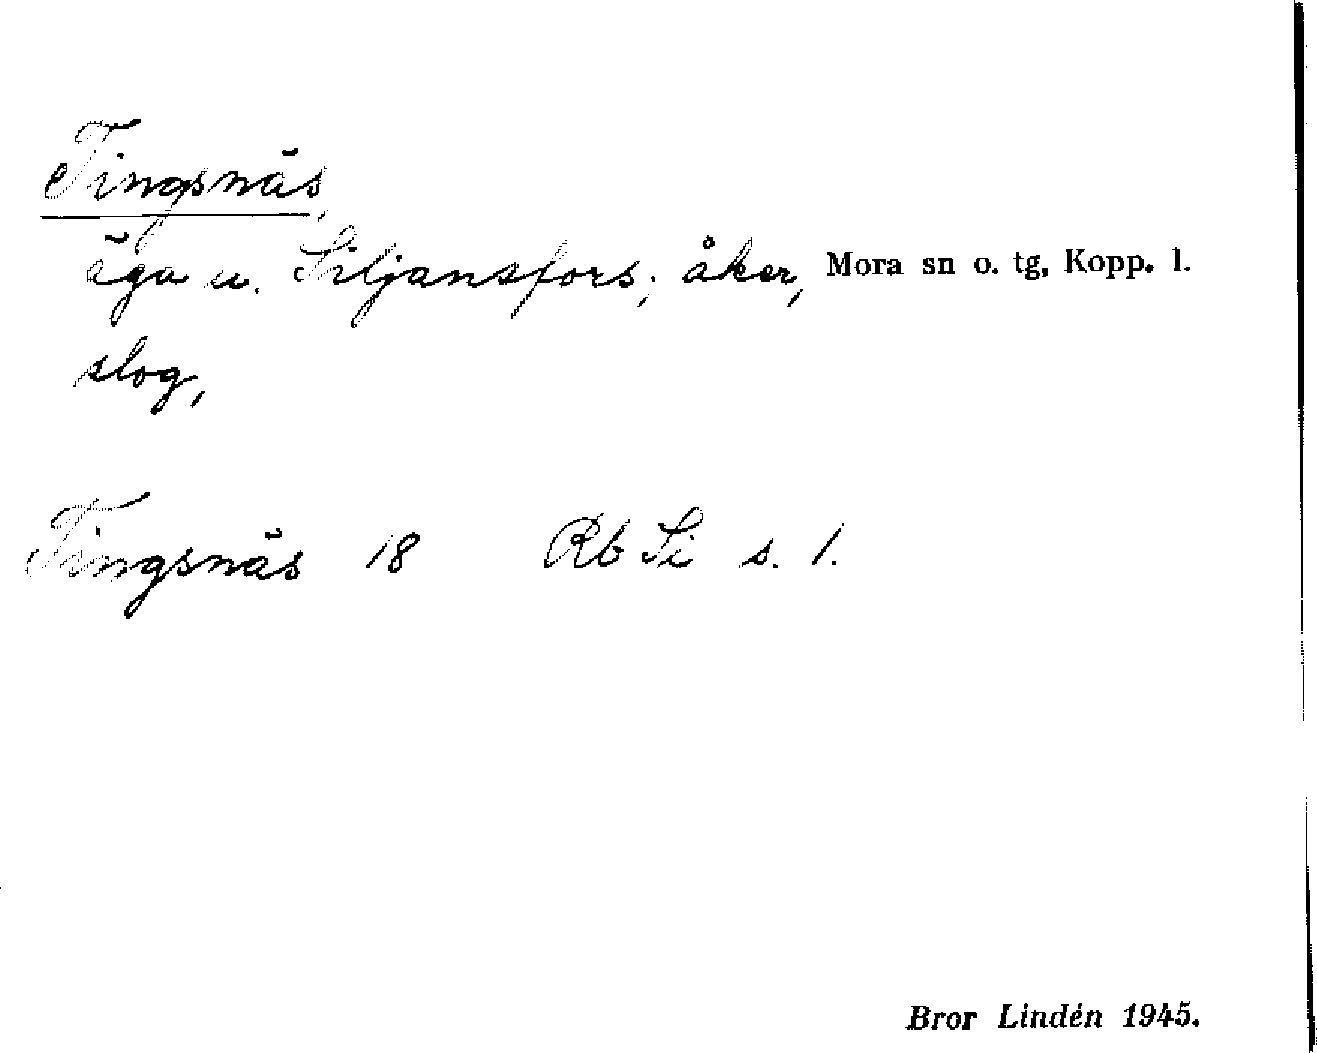 Tingsnäs,
äga u. Siljansfors; åker, Mora sn o. tg, Kopp. l.
slog,
Tingsnäs 18 Rb Si s. 1.
Bror Lindén 1945.